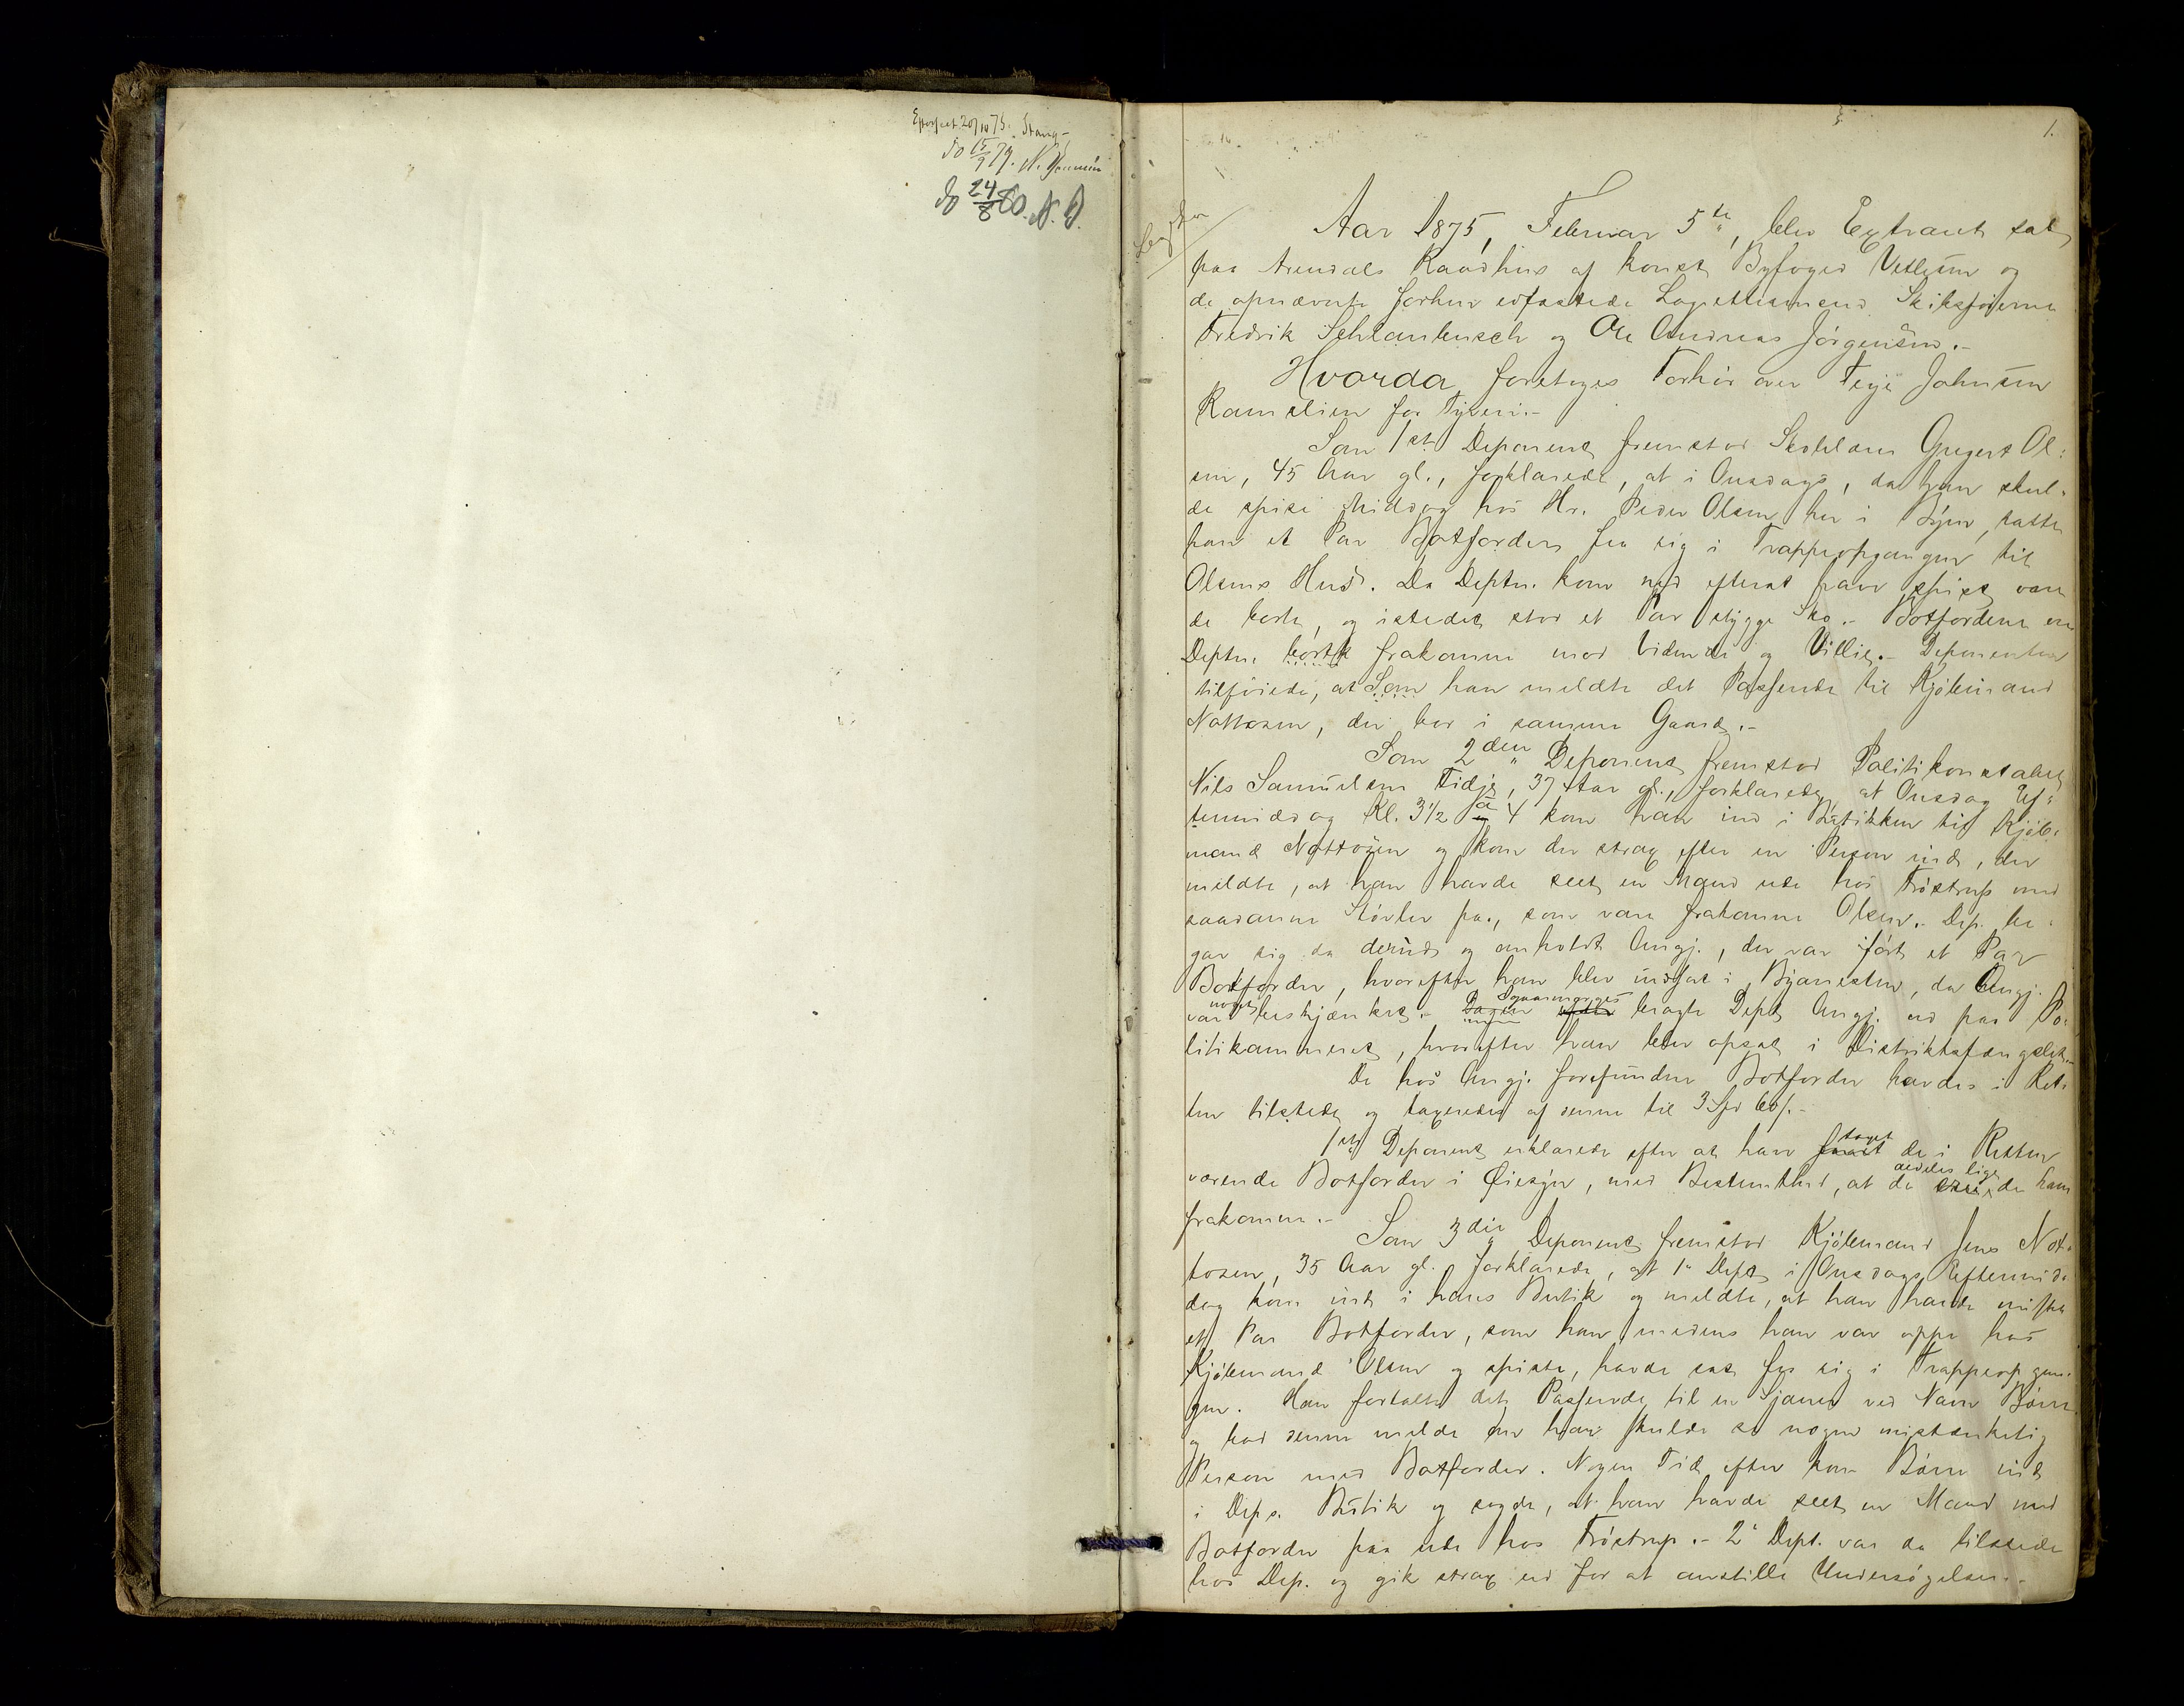 Efterseet 20/10 75. Stang
do 15/9 79. N.
do 24/8 80. N. D.
1.
Aar 1875, Februar 5te, blev Extraret sat
paa Arendals Raadhus af konst. Byfoged Vetlesen og
de opnævnte forhen edfæstede Lagrettesmænd Skibsførerne
Fredrik Schlanbusch og Ole Andreas Jörgensen.-
Hvorda foretoges Forhör over Terje Johnsen
Ramslien for Tyveri.-
Som 1st Deponent fremstod Gregert Ol:
sen, 45 Aar gl., forklarede, at i Onsdags, da han skul-
de spise Middag hos Hr. Peder Olsen her i Byen, satte
han et Par Botforder fra sig i Trappeopgangen til
Olsens Hus. Da Deptn. kom ned efterat have spist vare
de borte, og istedet stod et Par stygge Sko.- Botforderne ere
Deptn. bortk frakomne mod Vidende og Villie.- Deponenten
tilföiede, at Som han meldte det Passerede til Kjöbmand
Nottosen, der bor i samme Gaard.-
Som 2den Deponent fremstod Politikonstabel
Nils Samuelsen Fidje, 37 Aar gl., forklarede, at Onsdag Ef:
termiddag Kl. 3½ à 4 kom han ind i Butikken til Kjöb-
mand Nottosen og kom der strax efter en Person ind, der
meldte, at han havde seet en Mand ude hos Tröstrup med
saadanne Stövler paa, som vare frakomne Olsen.- Dep. be-
gav sig da derud og anholdt Angj., der var iført et Par
Botforder, hvorefter han blev indsat i Byarresten, da Angj.
var noget beskjænket.- Dagen efter Igaarmorges bragte Dept. Angj. ud paa Po-
litikammeret, hvorefter han blev opsat i Distriktsfængslet.-
De hos Angj. forefundne Botforder havdes i Ret-
ten tilstede og taxeredes af denne til 3 Spd 60 ß.-
1ste Deponent erklærede efter at have taget de i Retten
værende Botforder i Øiesyn, med Bestemthed, at de aldeles ligne de ham
frakomne.-
Som 3die Deponent fremstod Kjöbmand Jens Not-
tosen, 35 Aar gl. forklarede, at 1ste Dept. i Onsdags Eftermid-
dag kom ind i hans Butik og meldte, at han havde mistet
et Par Botforder, som han medens han var oppe hos
Kjöbmand Olsen og spiste, havde sat fra sig i Trappeopgan-
gen. Han fortalte det Passerede til en Sjauer ved Navn Börre
og bad denne melde om han skulde se nogen mistænkelig
Person med Botforder. Nogen Tid efter kom Börre ind
i Deps. Butik og sagde, at han havde seet en Mand med
Botforder paa ude hos Tröstrup.- 2den Dept. var da tilstede
hos Dep. og gik strax ud for at anstille Undersögelser.-